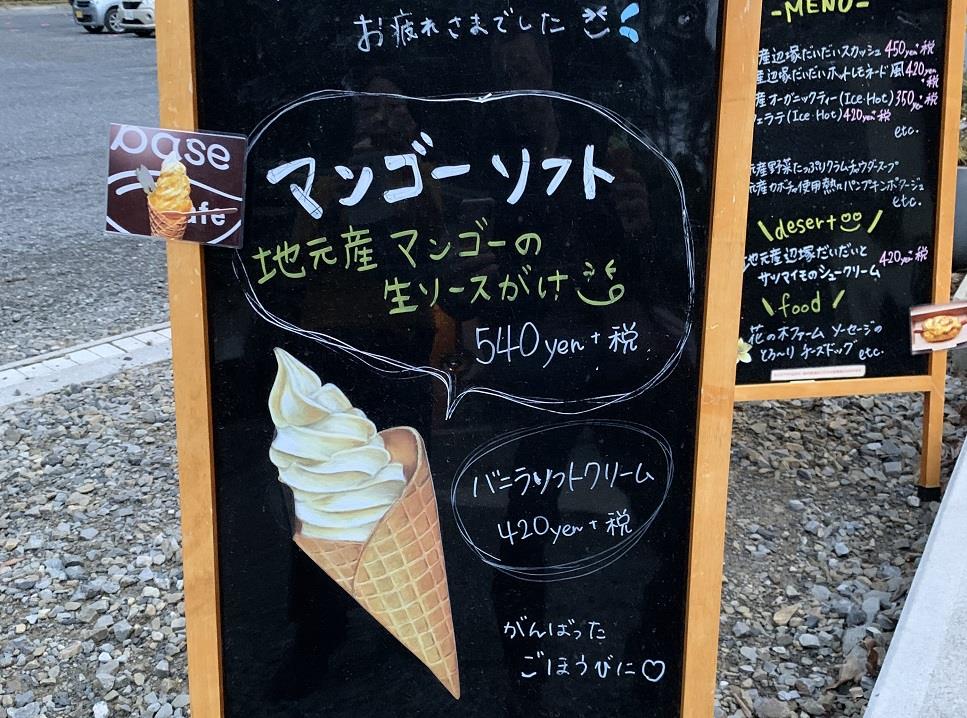 お疲れさまでした
マンゴー ソフト
地元産 マンゴーの
生ソースがけ
540yen+税
バニラソフトクリーム
420yen+税
がんばった
ごほうびに♡
base
-MENU-
産辺塚だいだいスカッシュ 450yen+税
産辺塚だいだいホットレモネード風 420yen+税
産オーガニックティー(Ice・Hot) 350yen+税
ェラテ(Ice・Hot) 420yen+税
etc.
元産野菜たっぷりクラムチャウダースープ
元産カボチャ使用熱々パンプキンポタージュ
etc.
\desert /
地元産辺塚だいだいと
サツマイモのシュークリーム 420yen+税
\food /
花の木ファーム ソーセージの
とろ〜り チーズドッグ etc.